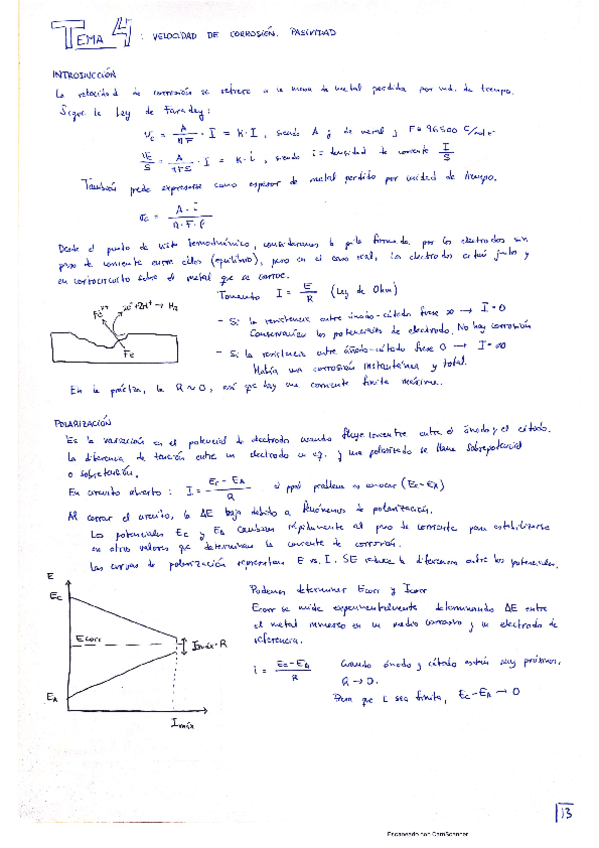 TEMA 4 : VELOCIDAD DE CORROSIÓN. PASIVIDAD
INTRODUCCIÓN
La velocidad de corrosión se refiere a la masa de metal perdida por unid. de tiempo.
Sigue la Ley de Faraday:
Vc = A/nF · I = K·I , siendo A g de metal y F = 96500 C/mol e-
Vc/S = A/nFS · I = K·i , siendo i = densidad de corriente I/S
También puede expresarse como espesor de metal perdido por unidad de tiempo.
Vc = A·i/n·F·ρ
Desde el punto de vista termodinámico, consideramos la pila formada por los electrodos sin
paso de corriente entre ellos (equilibrio), pero en el caso real, los electrodos están juntos y
en cortocircuito sobre el metal que se corroe.
Tomando I = E/R (Ley de Ohm)
- Si la resistencia entre ánodo-cátodo fuese ∞ → I = 0
Conservarían los potenciales de electrodo. No hay corrosión
- Si la resistencia entre ánodo-cátodo fuese 0 → I = ∞
Habría una corrosión instantánea y total.
2e-+2H+ → H2
Fe
En la práctica, la R ≈ 0, así que hay una corriente finita máxima.
POLARIZACIÓN
Es la variación en el potencial de electrodo cuando fluye corriente entre el ánodo y el cátodo.
La diferencia de tensión entre un electrodo en eq. y uno polarizado se llama sobrepotencial
o sobretensión.
En circuito abierto : I = Ec - EA/R problema es conocer (Ec-EA)
Al cerrar el circuito, la ΔE baja debido a fenómenos de polarización.
Los potenciales Ec y EA cambian rápidamente al paso de corriente para estabilizarse
en otros valores que determinan la corriente de corrosión.
Las curvas de polarización representan E vs. I. SE reduce la diferencia entre los potenciales.
E
Ec
Ecorr
Imáx·R
EA
Imáx
Podemos determinar Ecorr y Icorr
Ecorr se mide experimentalmente determinando ΔE entre
el metal inmerso en un medio corrosivo y un electrodo de
referencia.
i = Ec-EA/R Cuando ánodo y cátodo están muy próximos,
R → 0.
Para que I sea finita, Ec-EA → 0
13
Escaneado con CamScanner